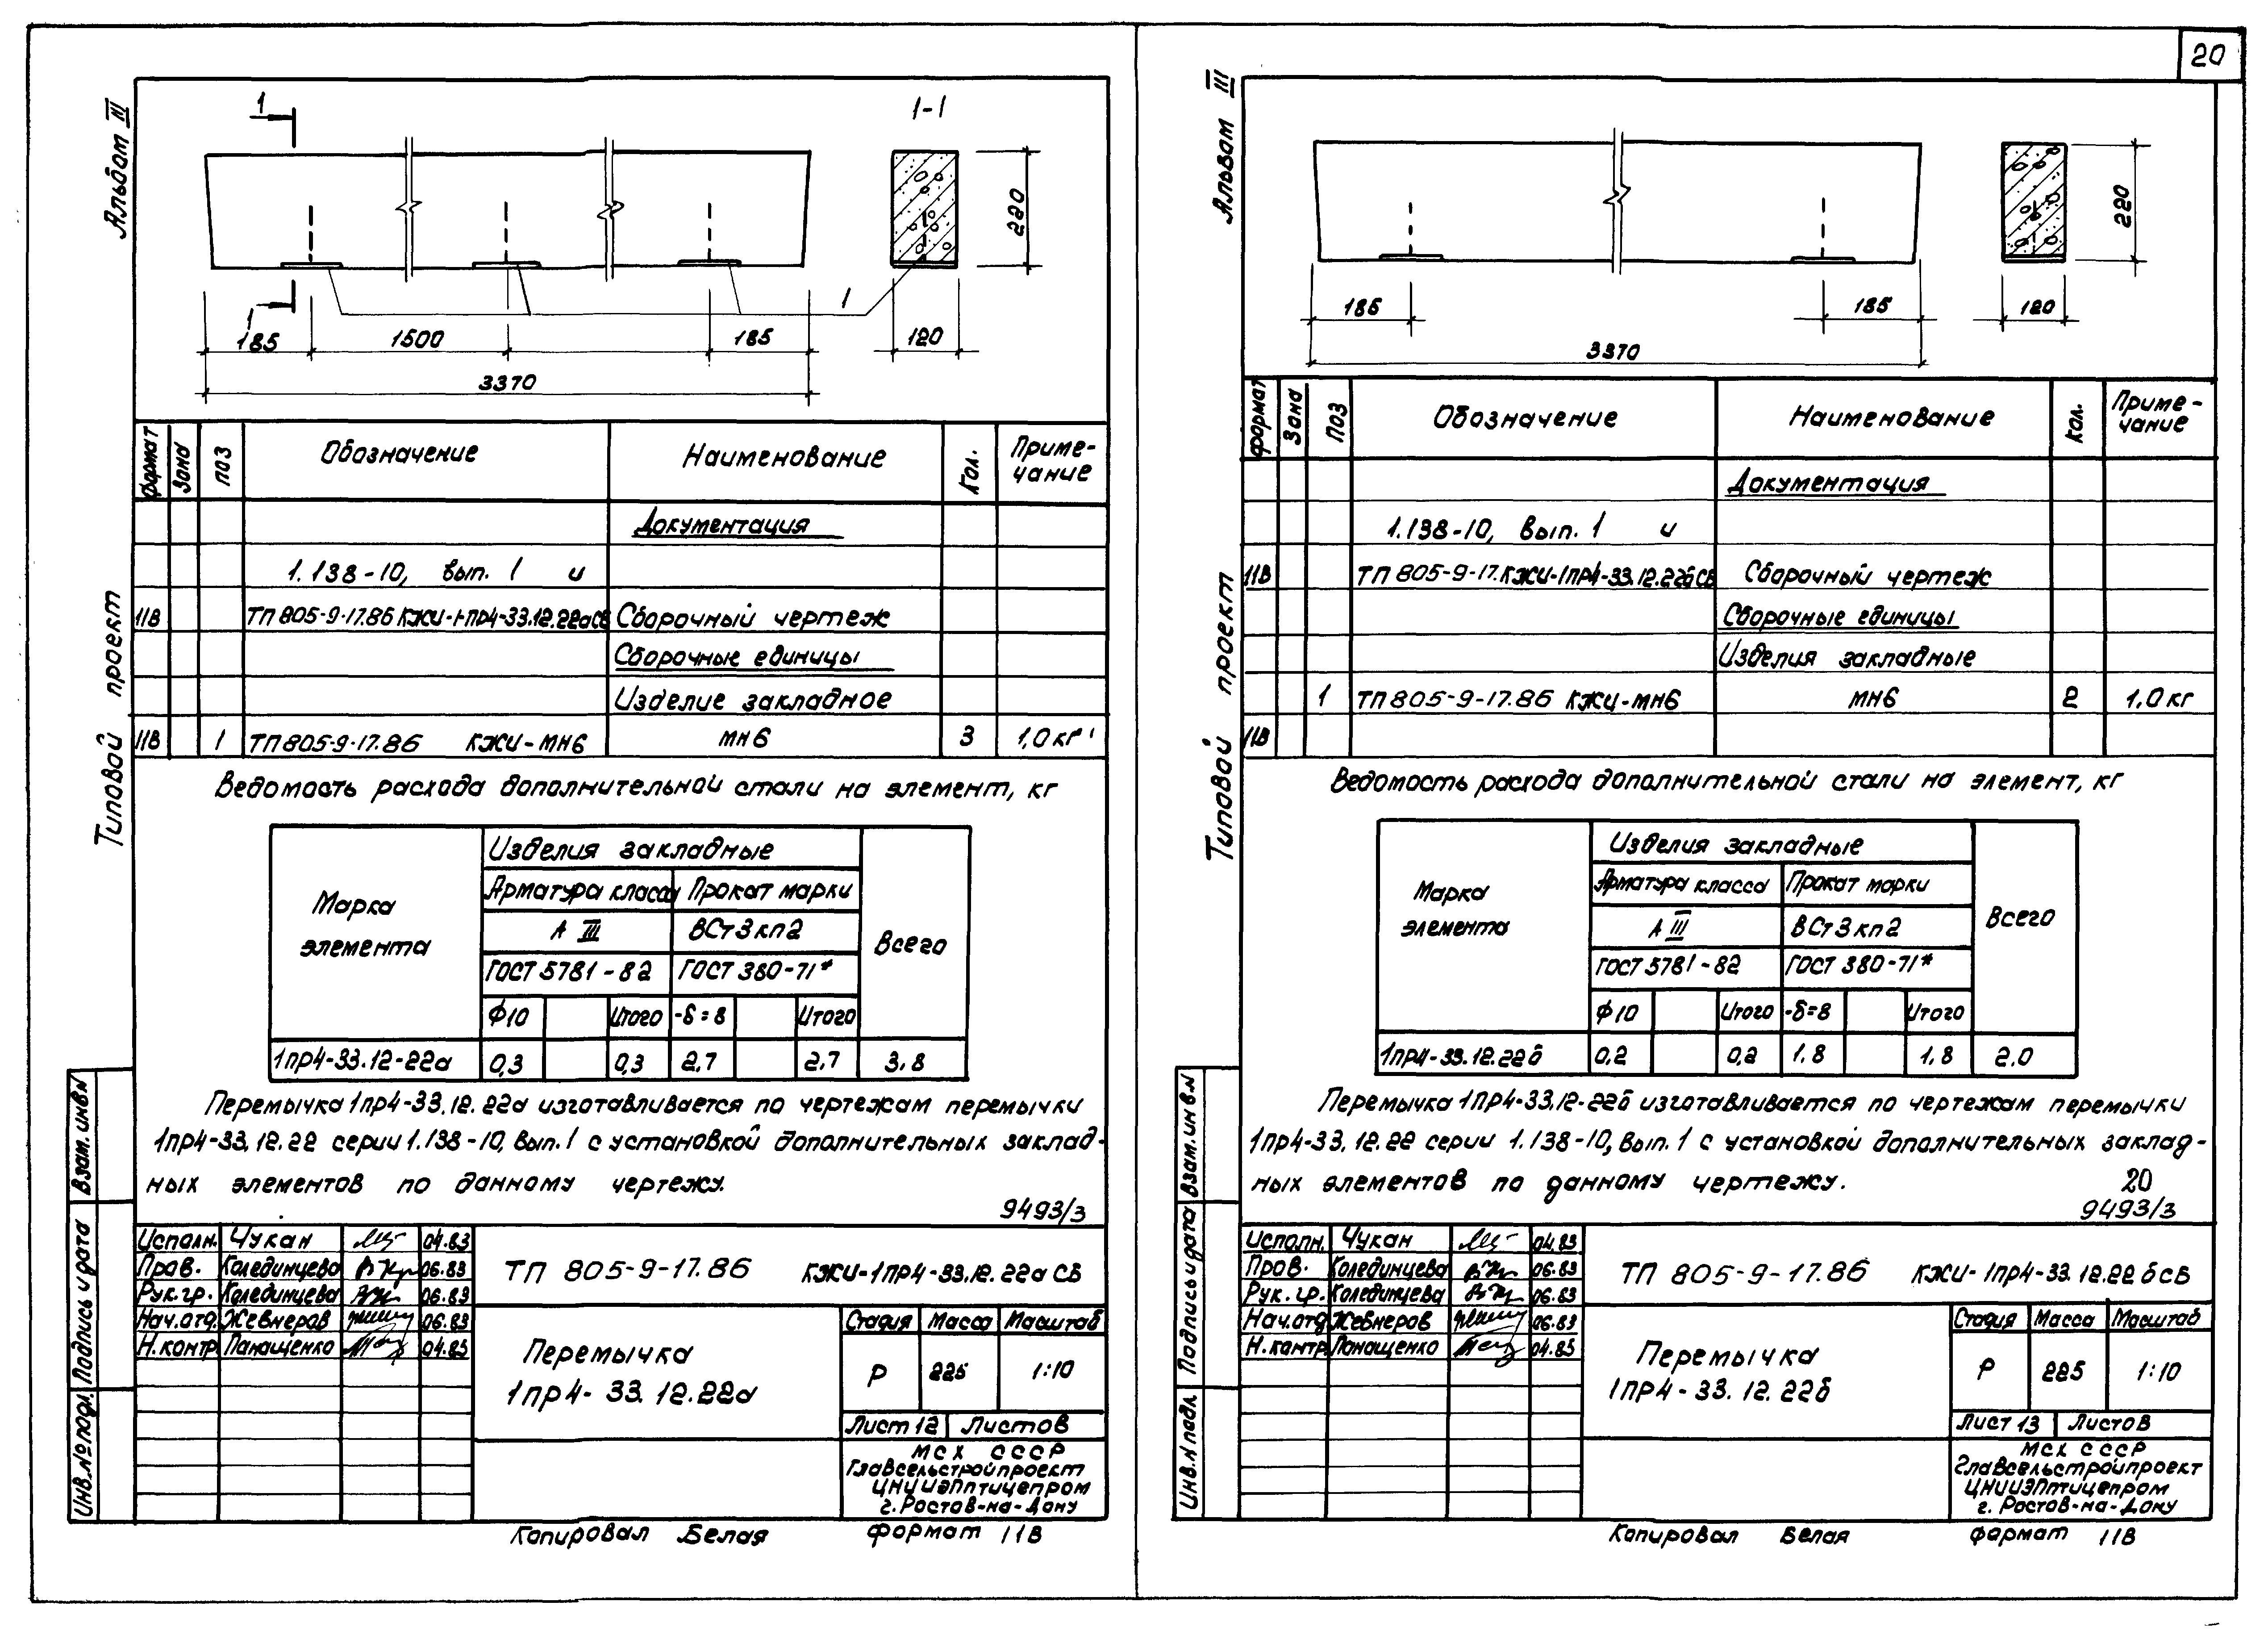 20
Альбом III
Типовой проект
1
1-1
220
1
1
185
1500
185
120
3370
Формат
Зона
Поз
Обозначение
Наименование
Кол.
Приме-
чание
Документация
1.138-10, вып. 1 и
11В ТП 805-9-17.86 КЖИ-1ПР4-33.12.22аСБ Сборочный чертеж
Сборочные единицы
Изделие закладное
11В 1 ТП 805-9-17.86 КЖИ-МН6 МН6 3 1,0 кг
Ведомость расхода дополнительной стали на элемент, кг
Марка
элемента
Изделия закладные
Арматура класса Прокат марки
А III ВСт3кп2
ГОСТ 5781-82 ГОСТ 380-71*
Всего
ф10 Итого -δ=8 Итого
1ПР4-33.12-22а 0,3 0,3 2,7 2,7 3.8
Перемычка 1ПР4-33.12.22а изготавливается по чертежам перемычки
1ПР4-33.12.22 серии 1.138-10, вып.1 с установкой дополнительных заклад-
ных элементов по данному чертежу.
9493/3
Взам. инв.№
Подпись и дата
Инв.№ подл.
Исполн. Чукан 04.83
Пров. Колединцева 06.83
Рук.гр. Колединцева 06.83
Нач.отд. Жевнеров 06.83
Н.контр. Панащенко 04.85
ТП 805-9-17.86 КЖИ-1ПР4-33.12.22а СБ
Перемычка
1ПР4-33.12.22а
Стадия Масса Масштаб
Р 225 1:10
Лист 12 Листов
МСХ СССР
Главсельстройпроект
ЦНИИЭПптицепром
г. Ростов-на-Дону
Копировал Белая Формат 11В
Альбом III
Типовой проект
220
185
185
120
3370
Формат
Зона
Поз
Обозначение
Наименование
Кол.
Приме-
чание
Документация
1.138-10, вып. 1 и
11В ТП 805-9-17.КЖИ-1ПР4-33.12.22бСБ Сборочный чертеж
Сборочные единицы
Изделия закладные
1 ТП 805-9-17.86 КЖИ-МН6 МН6 2 1,0 кг
11В
Ведомость расхода дополнительной стали на элемент, кг
Марка
элемента
Изделия закладные
Арматура класса Прокат марки
А III ВСт3кп2
ГОСТ 5781-82 ГОСТ 380-71*
Всего
ф10 Итого -δ=8 Итого
1ПР4-33.12.22б 0,2 0,2 1.8 1.8 2.0
Перемычка 1ПР4-33.12-22б изготавливается по чертежам перемычки
1ПР4-33.12.22 серии 1.138-10, вып.1 с установкой дополнительных заклад-
ных элементов по данному чертежу.
20
9493/3
Взам. инв.№
Подпись и дата
Инв.№ подл.
Исполн. Чукан 04.83
Пров. Колединцева 06.83
Рук.гр. Колединцева 06.83
Нач.отд Жевнеров 06.83
Н.контр. Панащенко 04.85
ТП 805-9-17.86 КЖИ-1ПР4-33.12.22б СБ
Перемычка
1ПР4-33.12.22б
Стадия Масса Масштаб
Р 225 1:10
Лист 13 Листов
МСХ СССР
Главсельстройпроект
ЦНИИЭПптицепром
г. Ростов-на-Дону
Копировал Белая Формат 11В